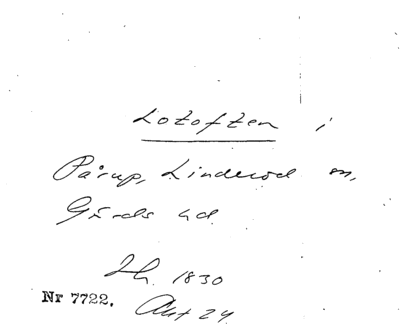 Lotoften i
Pårup, Linderod sn,
Gärds hd
Jh. 1830
Nr 7722. Akt 24